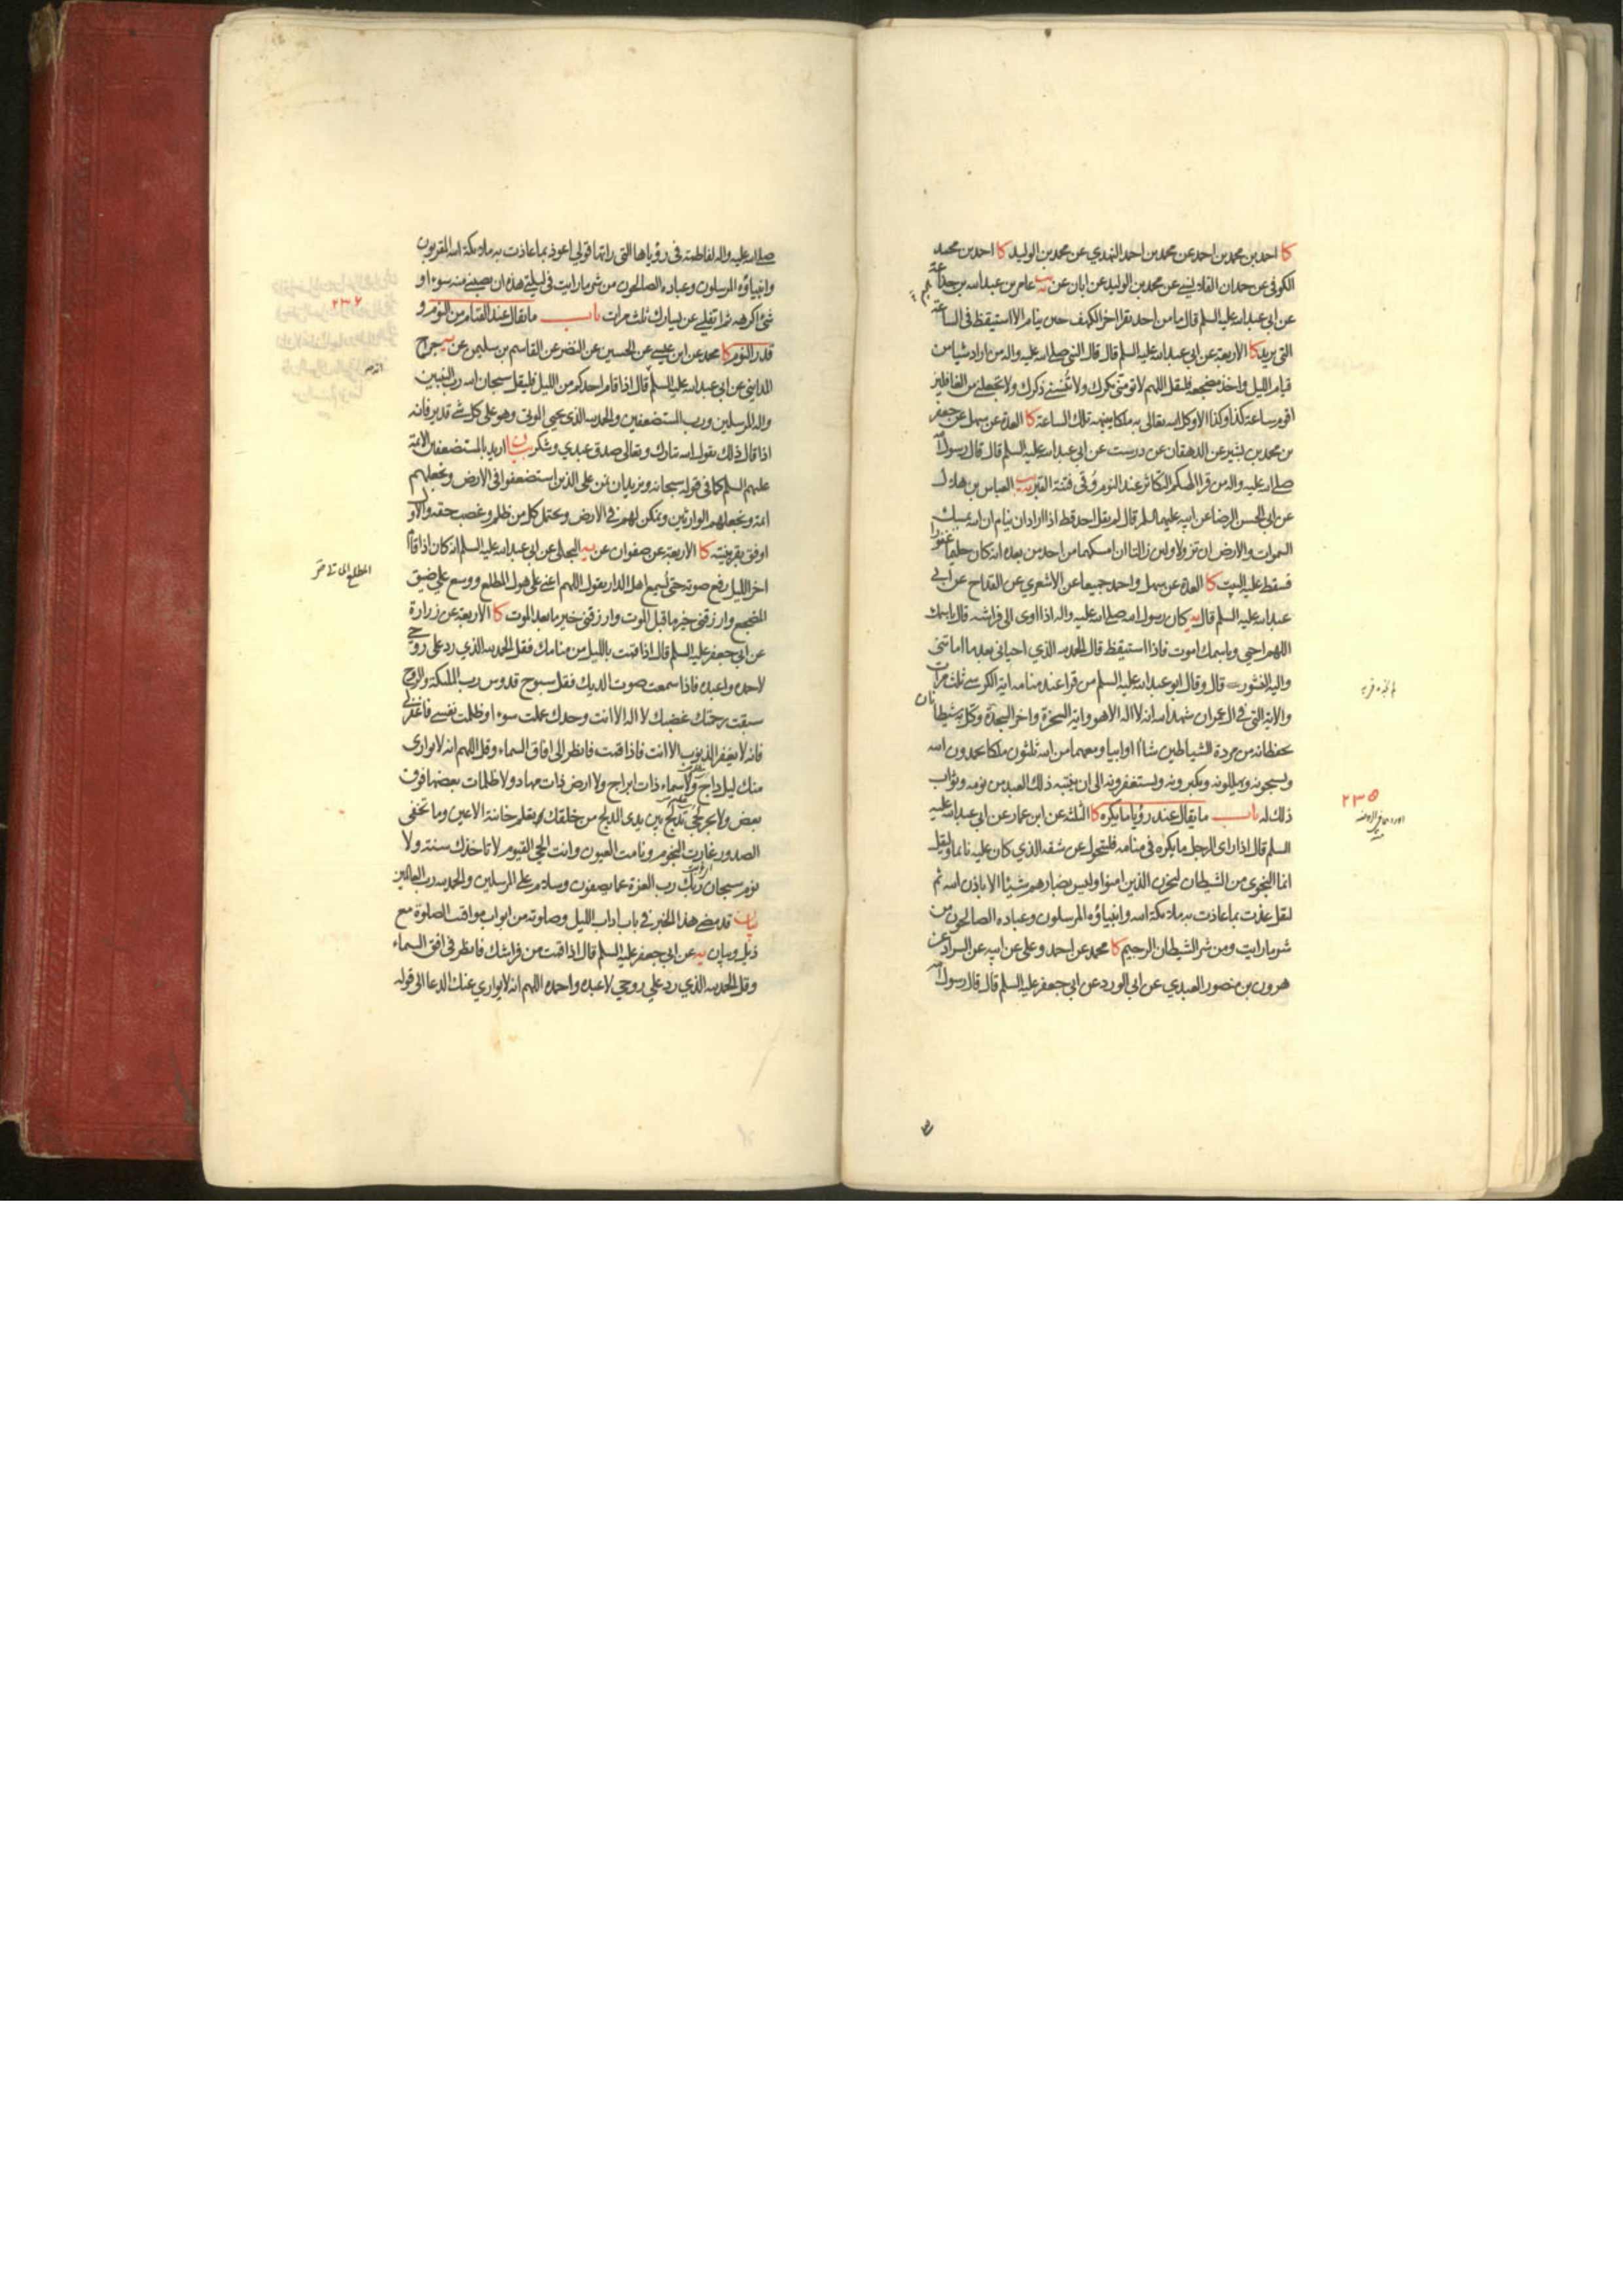 كا احمد بن محمد بن احمد عن محمد بن احمد النهدي عن محمد بن الوليد كا احمد بن محمد
الكوفي عن حمدان القلانسي عن محمد بن الوليد عن ابان عن يه عامر بن عبد الله بن جذاعة
عن ابي عبد الله عليه السلم قال ما من احد يقرا اخر الكهف حين ينام الا استيقظ في الساعة
التي يريد كا الاربعة عن ابي عبد الله عليه السلم قال قال النبي صلى الله عليه واله من اراد شيا من
قيام الليل واخذ مضجعه فليقل اللهم لا تومني مكرك ولا تنسني ذكرك ولا تجعلني من الغافلين
اقوم ساعة كذا وكذا الا وكل الله تعالى به ملكا ينبهه تلك الساعة كا العدة عن سهل عن جعفر
بن محمد بن بشير عن الدهقان عن درست عن ابي عبد الله عليه السلم قال قال رسول الله
صلى الله عليه واله من قرا الهيكم التكاثر عند النوم وقي فتنة القبر يب العباس بن هلال
عن ابي الحسن الرضا عن ابيه عليهما السلم قال لم يقل احد قط اذا اراد ان ينام ان الله يمسك
السموات والارض ان تزولا ولين زالتا ان امسكهما من احد من بعده انه كان حليما غفورا
فسقط عليه البيت كا العدة عن سهل واحمد جميعا عن الاشعري عن القداح عن ابي
عبد الله عليه السلم قال يه كان رسول الله صلى الله عليه واله اذا اوى الى فراشه قال باسمك
اللهم احيى وباسمك اموت فاذا استيقظ قال الحمد لله الذي احياني بعد ما اماتني
واليه النشور قال وقال ابو عبد الله عليه السلم من قرا عند منامه اية الكرسي ثلث مرات
والاية التي في ال عمران شهد الله انه لا اله الا هو واية السخرة واخر السجدة وكل به شيطانان
يحفظانه من مردة الشياطين شاؤا او ابوا ومعهما من الله ثلثون ملكا يحمدون الله
ويسبحونه ويهللونه ويكبرونه ويستغفرونه الى ان ينتبه ذلك العبد من نومه وثواب
ذلك له باب ما يقال عند رؤيا ما يكره كا الثلثة عن ابن عمار عن ابي عبد الله عليه
السلم قال اذا راى الرجل ما يكره في منامه فليتحول عن شقه الذي كان عليه نائما وليقل
انما النجوى من الشيطان ليحزن الذين امنوا وليس بضارهم شيئا الا باذن الله ثم
ليقل عذت بما عاذت به ملائكة الله وانبياؤه المرسلون وعباده الصالحون من
شر ما رايت ومن شر الشيطان الرجيم كا محمد عن احمد وعلي عن ابيه عن السراد عن
هرون بن منصور العبدي عن ابي الورد عن ابي جعفر عليه السلم قال قال رسول الله
٢٣٥
صلى الله عليه واله لفاطمة في رؤياها التي راتها قولي اعوذ بما عاذت به ملائكة الله المقربون
وانبياؤه المرسلون وعباده الصالحون من شر ما رايت في ليلتي هذه ان يصيبني منه سوء او
شئ اكرهه ثم اتفلي عن يسارك ثلث مرات باب ما يقال عند القيام من النوم و
قدر النوم كا محمد عن ابن عيسى عن الحسين عن النضر عن القاسم بن سليمن عن يه جراح
المدايني عن ابي عبد الله عليه السلم قال اذا قام احدكم من الليل فليقل سبحان الله رب النبيين
واله المرسلين ورب المستضعفين والحمد لله الذي يحيي الموتى وهو على كل شئ قدير فانه
اذا قال ذلك يقول الله تبارك وتعالى صدق عبدي وشكر بيان اريد بالمستضعفين الائمة
عليهم السلم كما في قوله سبحانه ونريد ان نمن على الذين استضعفوا في الارض ونجعلهم
ائمة ونجعلهم الوارثين ونمكن لهم في الارض ويحتمل كل من ظلم وغصب حقه والاول
اوفق بقرينته كا الاربعة عن صفوان عن يه البجلي عن ابي عبد الله عليه السلم انه كان اذا قام
اخر الليل رفع صوته حتى يسمع اهل الدار يقول اللهم اعني على هول المطلع ووسع علي ضيق
المضجع وارزقني خير ما قبل الموت وارزقني خير ما بعد الموت كا الاربعة عن زرارة
عن ابي جعفر عليه السلم قال اذا قمت بالليل من منامك فقل الحمد لله الذي رد علي روحي
لاحمده واعبده فاذا سمعت صوت الديك فقل سبوح قدوس رب الملئكة والروح
سبقت رحمتك غضبك لا اله الا انت وحدك عملت سوءا وظلمت نفسي فاغفر لي
فانه لا يغفر الذنوب الا انت فاذا قمت فانظر الى افاق السماء وقل اللهم انه لا يواري
منك ليل داج ولا سماء ذات ابراج ولا ارض ذات مهاد ولا ظلمات بعضها فوق
بعض ولا بحر لجي تدلج بين يدي المدلج من خلقك تعلم خائنة الاعين وما تخفي
الصدور غارت النجوم ونامت العيون وانت الحي القيوم لا تاخذك سنة ولا
نوم سبحان ربك رب العزة عما يصفون وسلام على المرسلين والحمد لله رب العالمين
بيان قد مضى هذا الخبر في باب اداب الليل وصلوته من ابواب مواقيت الصلوة مع
ذيل وبيان يه عن ابي جعفر عليه السلم قال اذا قمت من فراشك فانظر في افق السماء
وقل الحمد لله الذي رد علي روحي لاعبده واحمده اللهم انه لا يواري عنك الدعا الى قوله
٢٣٦